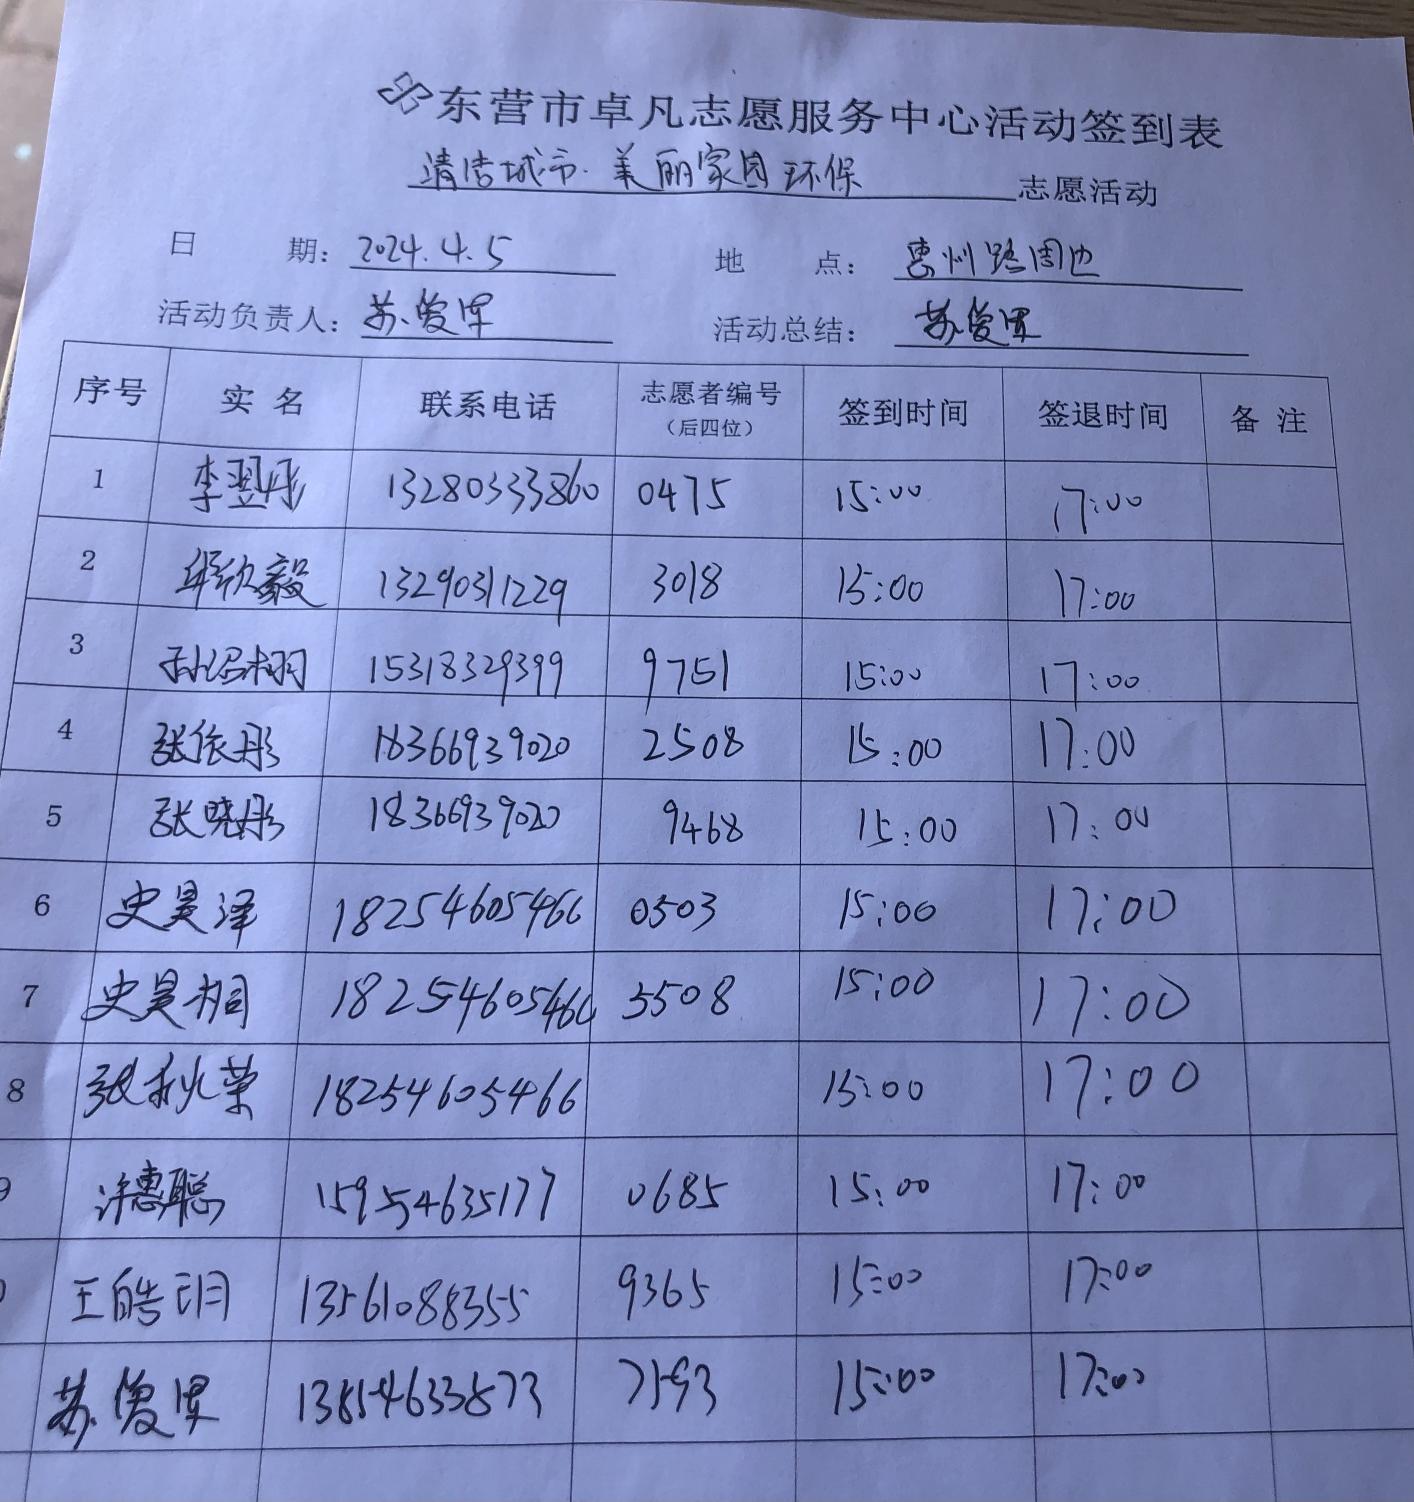 东营市卓凡志愿服务中心活动签到表
清洁城市·美丽家园环保 志愿活动
日 期: 2024.4.5 地 点: 惠州路周边
活动负责人: 苏俊军 活动总结: 苏俊军
序号 实名 联系电话 志愿者编号(后四位) 签到时间 签退时间 备注
1 李翌彤 13280333860 0475 15:00 17:00
2 欣毅 13290311229 3018 15:00 17:00
3 15318329399 9751 15:00 17:00
4 张依彤 18366939020 2508 15:00 17:00
5 张晓彤 18366939020 9468 15:00 17:00
6 史昊泽 18254605466 0503 15:00 17:00
7 史昊桐 18254605466 5508 15:00 17:00
8 张秋荣 18254605466 15:00 17:00
9 许惠聪 15954635177 0685 15:00 17:00
王皓玥 13561088355 9365 15:00 17:00
苏俊军 13854633873 7193 15:00 17:00